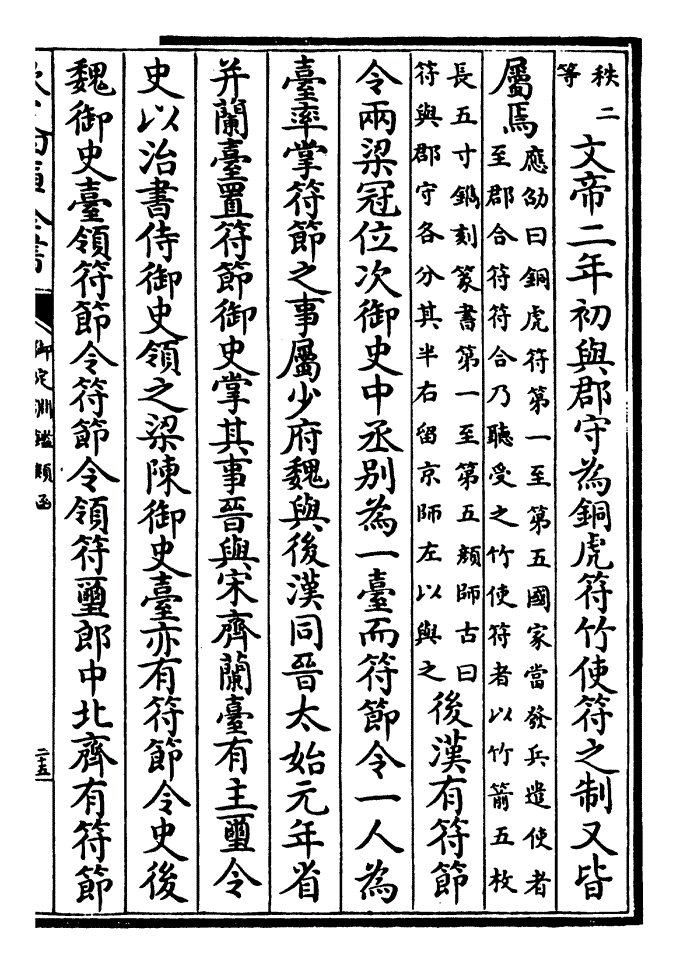 秩二
等
文帝二年初與郡守為銅虎符竹使符之制又皆
屬焉
應劭曰銅虎符第一至第五國家當發兵遣使者
至郡合符符合乃聽受之竹使符者以竹箭五枚
長五寸鐫刻篆書第一至第五顏師古曰
符與郡守各分其半右留京師左以與之
後漢有符節
令兩梁冠位次御史中丞別為一臺而符節令一人為
臺率掌符節之事屬少府魏與後漢同晉太始元年省
并蘭臺置符節御史掌其事晉與宋齊蘭臺有主璽令
史以治書侍御史領之梁陳御史臺亦有符節令史後
魏御史臺領符節令符節令領符璽郎中北齊有符節
御定淵鑑類函
二十五